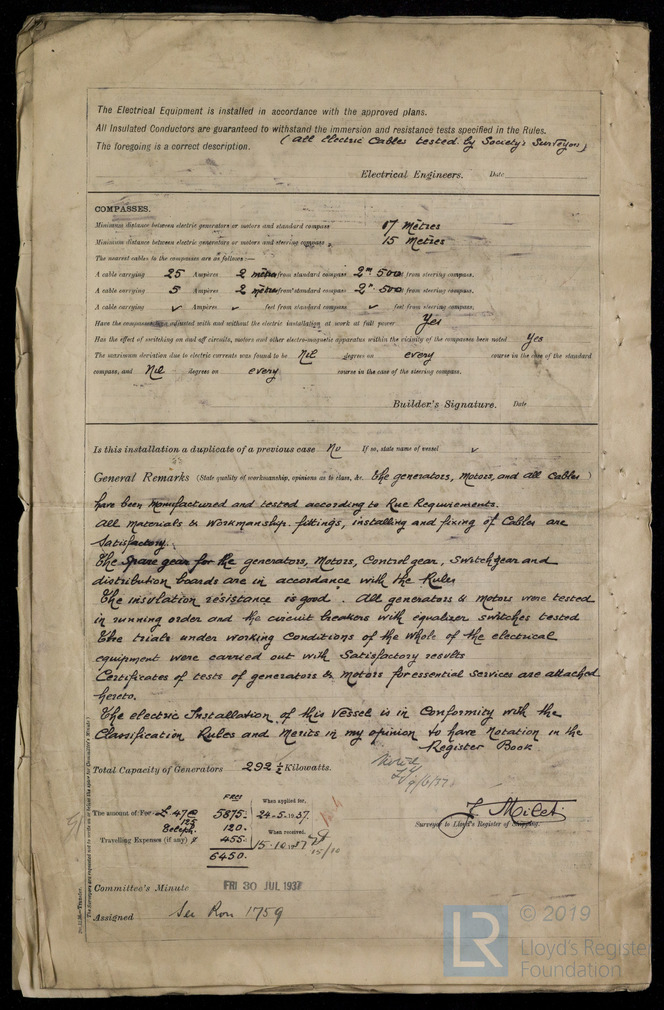 The Electrical Equipment is installed in accordance with the approved plans.
All Insulated Conductors are guaranteed to withstand the immersion and resistance tests specified in the Rules.
The foregoing is a correct description. (All Electric Cables tested by Society's Surveyors)
Electrical Engineers. Date
COMPASSES.
Minimum distance between electric generators or motors and standard compass 17 Mètres
Minimum distance between electric generators or motors and steering compass 15 Metres
The nearest cables to the compasses are as follows:—
A cable carrying 25 Ampères 2 mètres from standard compass 2m 500 from steering compass.
A cable carrying 5 Ampères 2 mètres from standard compass 2m 500 from steering compass.
A cable carrying ✓ Ampères ✓ feet from standard compass ✓ feet from steering compass.
Have the compasses been adjusted with and without the electric installation at work at full power Yes
Has the effect of switching on and off circuits, motors and other electro-magnetic apparatus within the vicinity of the compasses been noted Yes
The maximum deviation due to electric currents was found to be Nil degrees on every course in the case of the standard
compass, and Nil degrees on every course in the case of the steering compass.
Builder's Signature. Date
Is this installation a duplicate of a previous case No If so, state name of vessel ✓
General Remarks (State quality of workmanship, opinions as to class, &c. The generators, Motors, and all Cables)
have been manufactured and tested according to Rue Requirements.
All materials & workmanship. fittings, installing and fixing of Cables are
Satisfactory.
The Spare gear for the generators, Motors, Control gear, Switchgear and
distribution boards are in accordance with the Rules
The insulation résistance is good. All generators & Motors were tested
in running order and the circuit breakers with equalizer switches tested
The trials under working Conditions of the whole of the electrical
equipment were carried out with Satisfactory results
Certificates of tests of generators & Motors for essential Services are attached
hereto.
The electric Installation of this Vessel is in Conformity with the
Classification Rules and Merits in my opinion to have Notation in the
Register Book
Total Capacity of Generators 292 ½ Kilowatts.
Noted
9/6/37
FRCS
The amount of Fee £ 47 5875. When applied for, 24-5-1937.
125
120.
Travelling Expenses (if any) £ 455. When received, 15.10.1937
15/10
6450.
J. Milet
Surveyor to Lloyd's Register of Shipping.
Committee's Minute FRI 30 JUL 1937
Assigned See Rou 1759
© 2019
LR
Lloyd's Register
Foundation